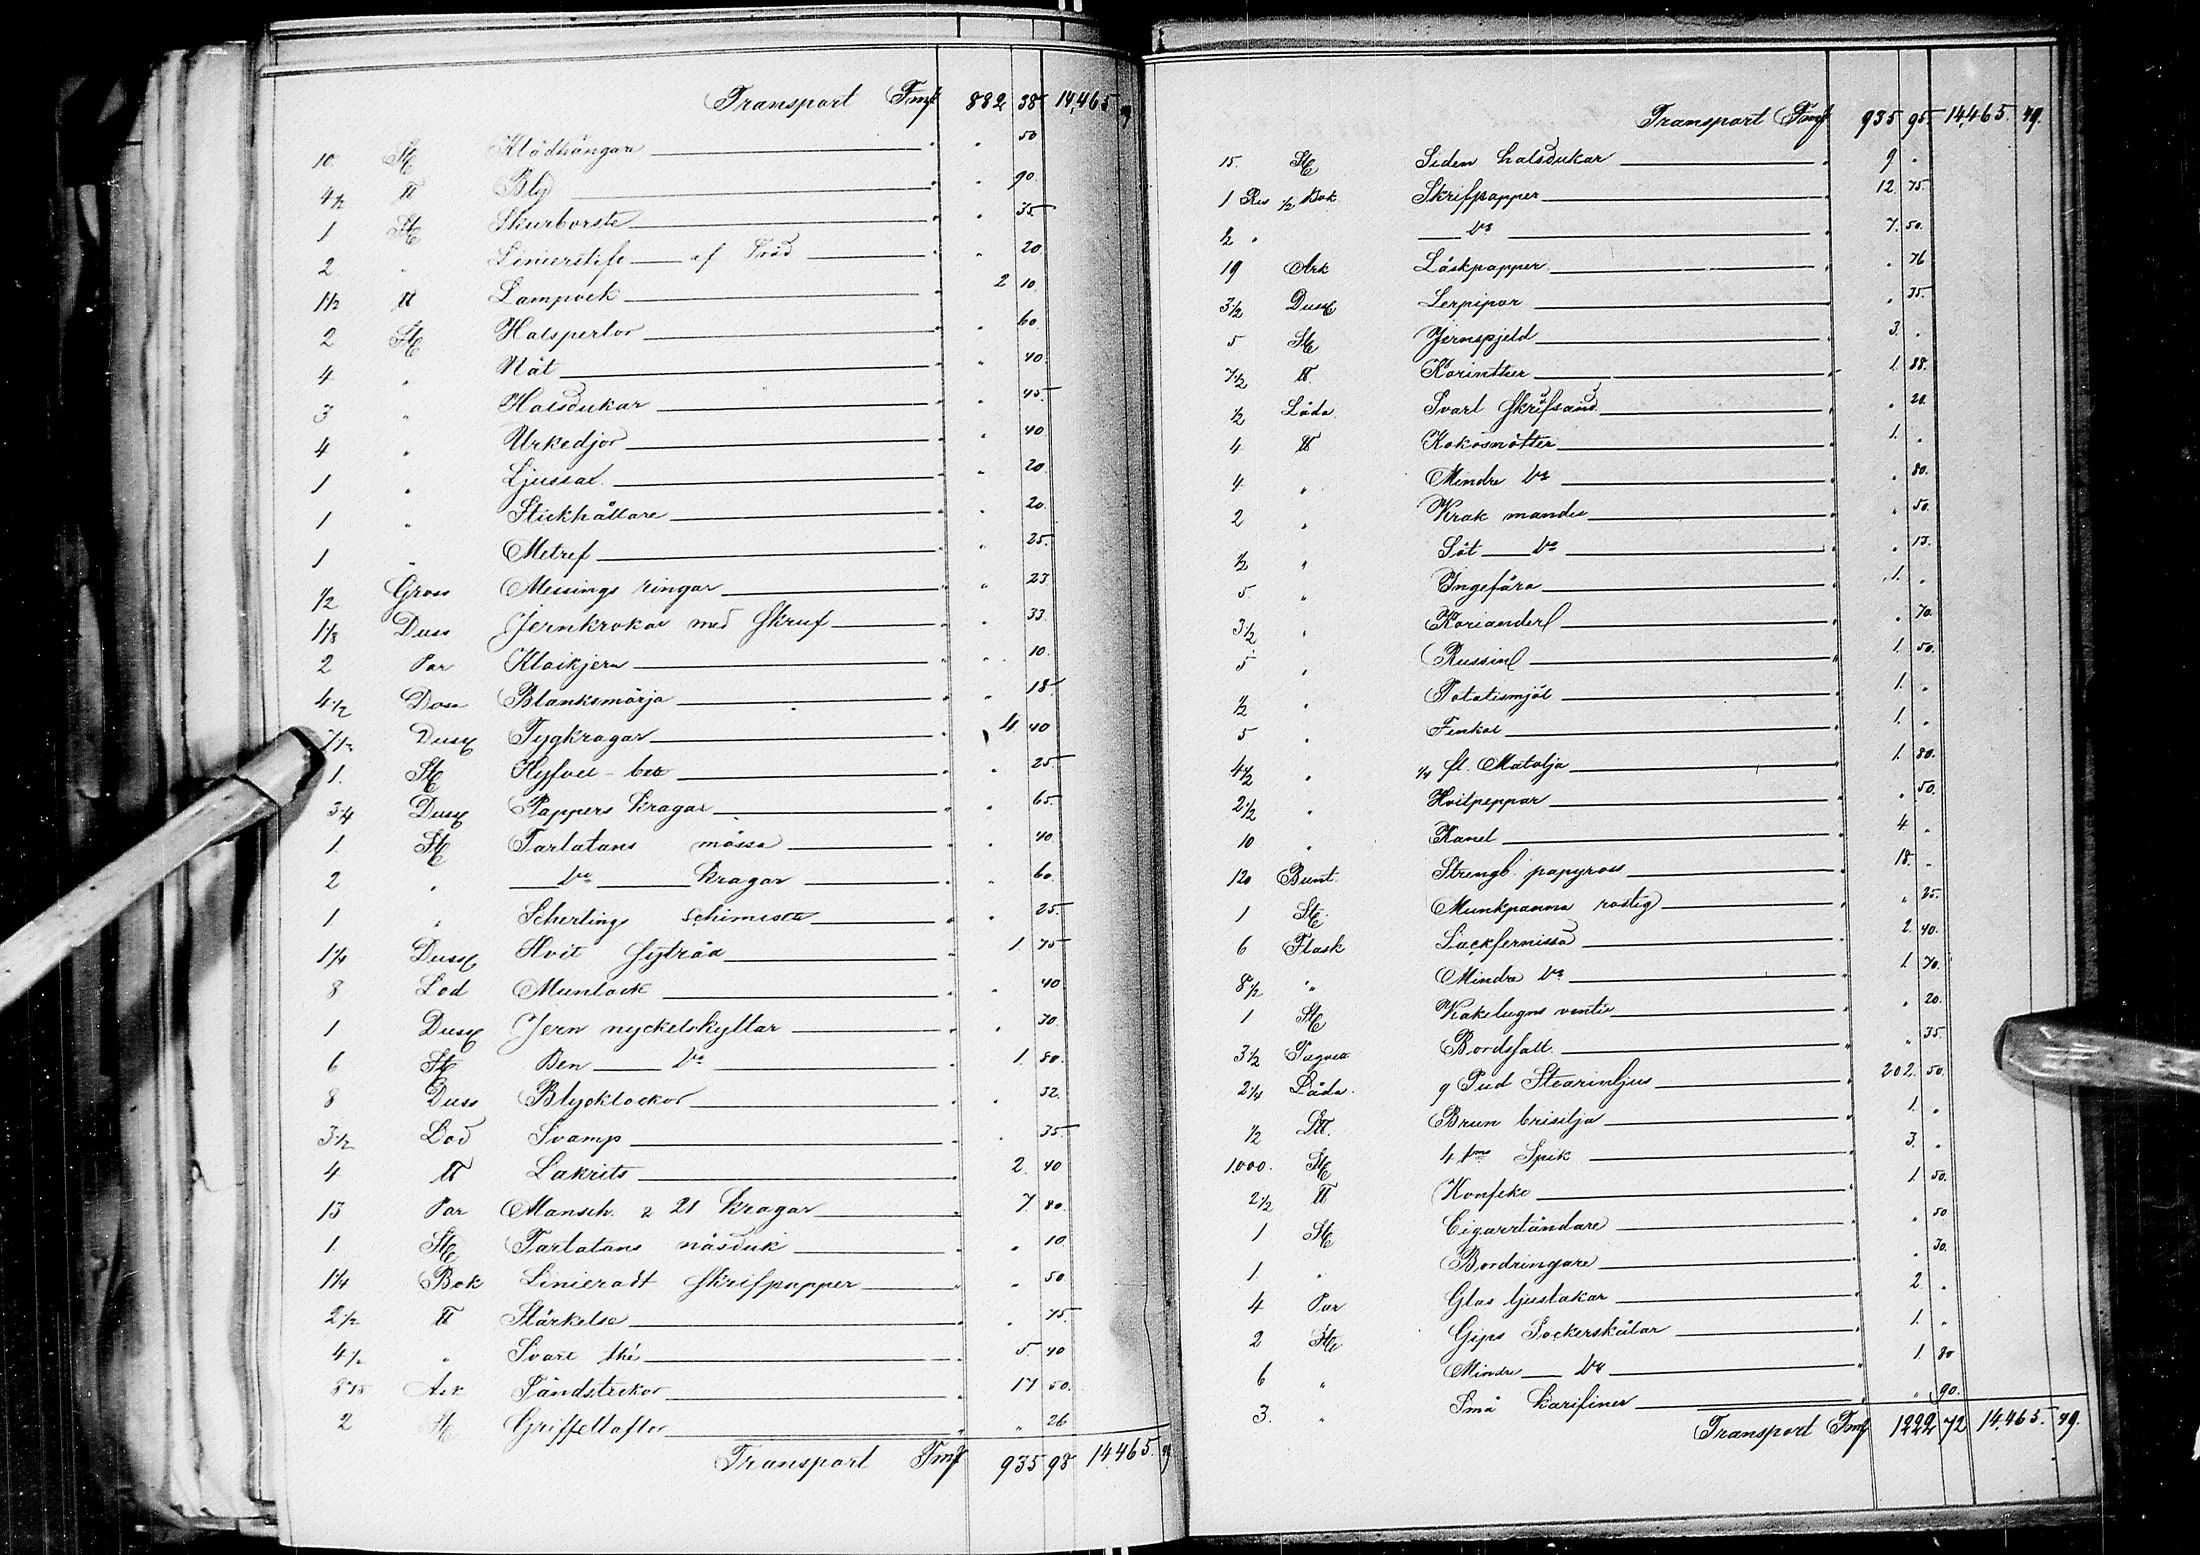 Transport Fmk 882 38 14,465 49
10 St Klädhängare " 50
4 1/2 ℔ Bly " 90
1 St Skurborste " 35
2 " Linierstift af Träd " 20
1 1/2 ℔ Lampvek 2 10
2 St Halsperlor " 60
4 " Nät " 40
3 " Halsdukar " 45
4 " Urkedjor " 40
1 " Ljussax " 20
1 " Stickhållare " 20
1 " Metref " 25
1/2 Gross Messings ringar " 23
1 1/3 Duss Jernkrokar med Skruf " 33
2 Par Klackjern " 10
4 1/2 Dosa Blanksmörja " 18
Duss Tygkragar 4 40
1 St Hyfvel-bett " 25
3/4 Duss Pappers kragar " 65
1 St Tarlatans mössa " 40
2 " do kragar " 60
1 " Scherting " 25
1 1/4 Duss Hvit sytråd 1 75
8 Lod Munlack " 40
1 Duss Jern nyckelskyltar " 70
6 St Ben do 1 80
8 Duss Blyklockor " 32
3 1/2 Lod Svamp " 35
4 ℔ Lakrits 2 40
13 Par Mansch. 21 kragar 7 80
1 St Tarlatans näsduk " 10
1 1/4 Bok Linieradt Skrifpapper " 50
2 1/2 ℔ Stärkelse " 75
4 1/2 " Svart thé 5 40
875 Ask Tändstickor 17 50
2 St Griffeltaflor " 26
Transport Fmk 935 98 14,465 49
Transport Fmk 935 95 14,465 49
15 St Siden halsdukar 9 "
1 Ris 1/2 Bok Skrifpapper 12 75
1/2 " do 7 50
19 Ark Läskpapper " 76
3 1/2 Duss Lerpipor " 35
5 St Jernspjeld 3 "
7 1/2 ℔ Korinther 1 88
1/2 Låda Svart Skrifsand " 20
4 ℔ Kokosnötter 1 "
4 " Mindre do " 80
2 " Krak mandel " 50
1/2 " Söt do " 13
5 " Ingefära 1 "
3 1/2 " Koriander " 70
5 " Russin 1 50
1/2 " Potatismjöl 1 "
5 " Fenkol 1 "
4 1/2 " 1/4 fl. Matolja 1 80
2 1/2 " Hvitpeppar " 50
10 " Kanel 4 "
120 Bunt Strengb. papyross 18 "
1 St Munkpanna rostig " 25
6 Flask Lackfernissa 2 40
8 1/2 " Mindre do 1 70
1 St Kakelugns ventil " 20
3 1/2 Bordsalt " 35
2 1/4 Låda 9 Pud Stearinljus 202 50
1/2 L℔ Brun brisilja 1 "
1,000 St 4 tms Spik 3 "
2 1/2 ℔ Konfekt 1 50
1 St Cigarrtändare " 50
1 " Bordringare " 30
4 Par Glas ljustakar 2 "
2 St Gips Sockerskålar 1 "
6 " Mindre do 1 80
3 " Små karafiner " 90
Transport Fmk 1222 72 14,465 49